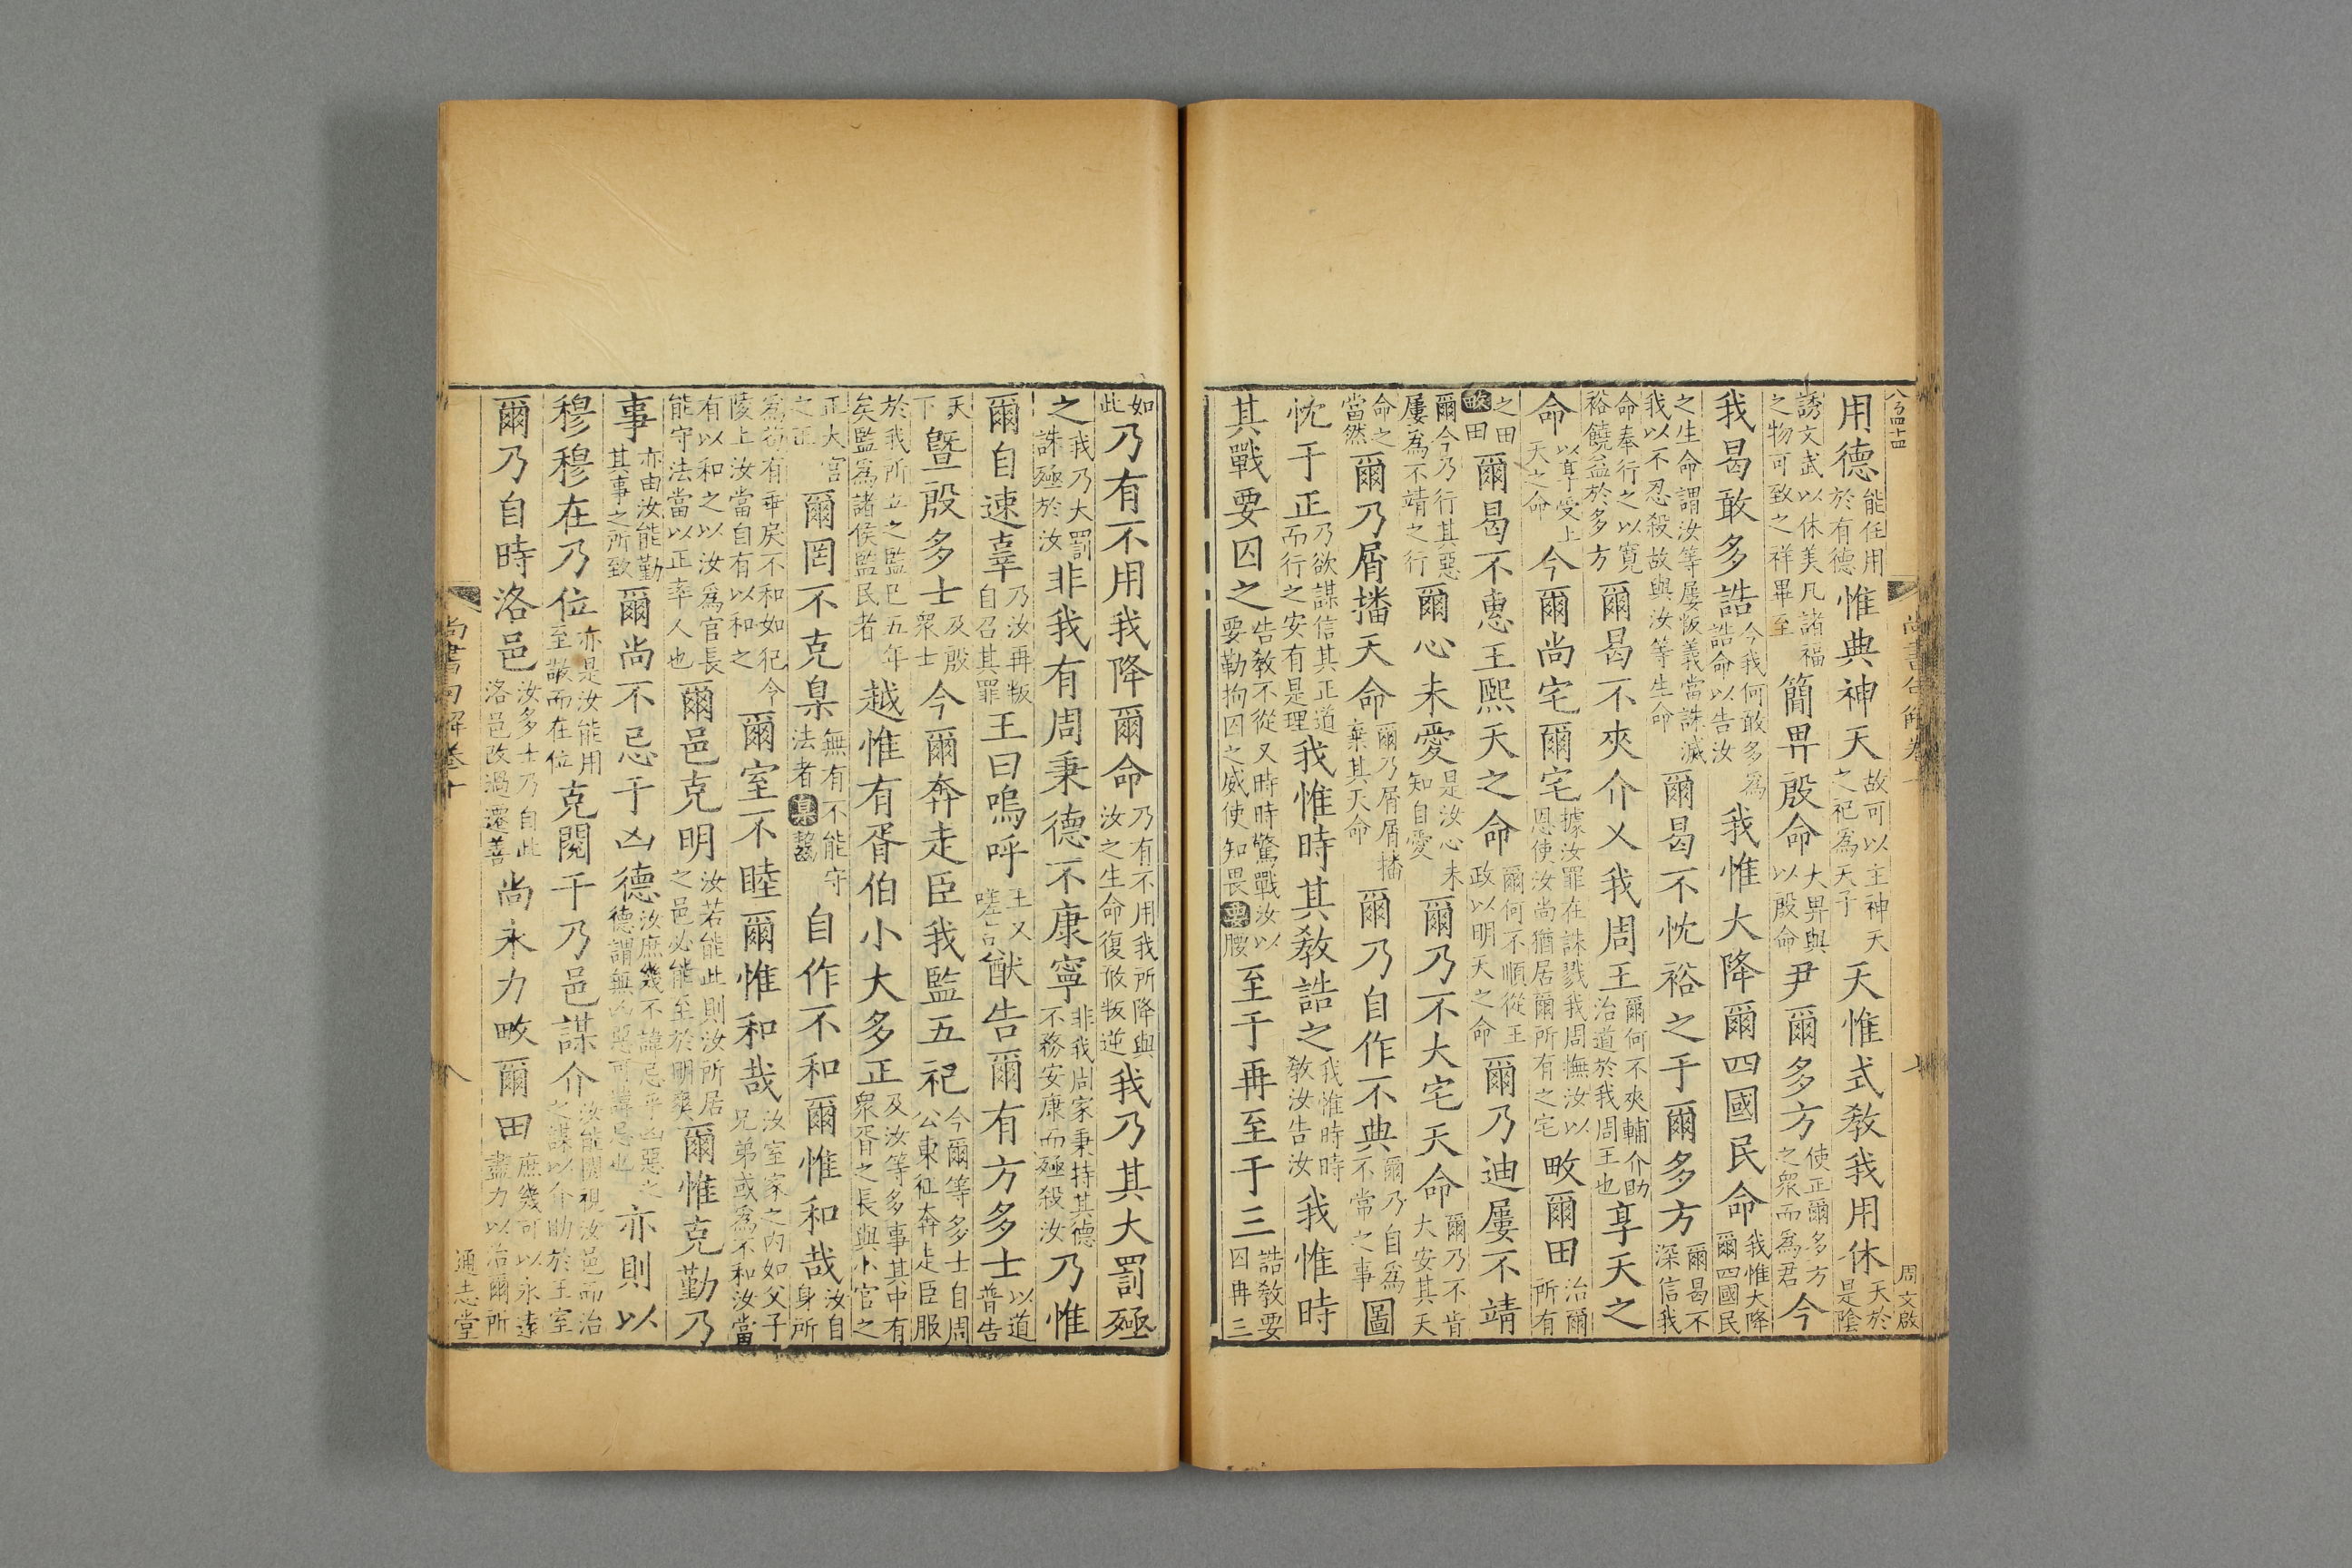 八〇四十四 尚書句解卷十 七 周文啟
用德能任用於有德惟典神天故可以主神天之祀為天子天惟式教我用休天於是陰
誘文武以休美凡諸福之物可致之祥畢至簡畀殷命大畀與以殷命尹爾多方使正爾多方之衆而為君今
我曷敢多誥今我何敢多為誥命以告汝我惟大降爾四國民命我惟大降爾四國民
之生命謂汝等屢叛義當誅滅我以不忍殺故與汝等生命爾曷不忱裕之于爾多方爾曷不深信我
命奉行之以寬裕饒益於多方爾曷不夾介乂我周王爾何不夾輔介助治道於我周王也享天之
命以享受上天之命今爾尚宅爾宅據汝罪在誅戮我周撫汝以恩使汝尚猶居爾所有之宅畋爾田治爾所有
之田畋田爾曷不惠王熙天之命爾何不順從王政以明天之命爾乃迪屢不靖
爾今乃行其惡屢為不靖之行爾心未愛是汝心未知自愛爾乃不大宅天命爾乃不肯大安其天
命之當然爾乃屑播天命爾乃屑屑播棄其天命爾乃自作不典爾乃自為不常之事圖
忱于正乃欲謀信其正道而行之安有是理我惟時其教誥之我惟時時教汝告汝我惟時
其戰要囚之告教不從又時時驚戰汝以要勒拘囚之威使知畏要腰至于再至于三誥教要囚再三
如此乃有不用我降爾命乃有不用我所降與汝之生命復攸叛逆我乃其大罰殛
之我乃大罰誅殛於汝非我有周秉德不康寧非我周家秉持其德不務安康而殛殺汝乃惟
爾自速辜乃汝再叛自召其罪王曰嗚呼王又嗟言猷告爾有方多士以道普告
天下暨殷多士及殷衆士今爾奔走臣我監五祀今爾等多士自周公東征奔走臣服
於我所立之監已五年矣監為諸侯監民者越惟有胥伯小大多正及汝等多事其中有衆胥之長與小官之
正大官之正爾罔不克臬無有不能守法者臬𦤞自作不和爾惟和哉汝自身所
為苟有乖戾不和如犯今陵上汝當自有以和之爾室不睦爾惟和哉汝室家之內如父子兄弟或為不和汝當
有以和之以汝為官長能守法當以正率人也爾邑克明汝若能此則汝所居之邑必能至於明爽爾惟克勤乃
事亦由汝能勤其事之所致爾尚不忌于凶德汝庶幾不諱忌乎凶惡之德謂無凶惡可諱忌也亦則以
穆穆在乃位亦是汝能用至敬而在位克閱于乃邑謀介汝能閱視汝邑而治之謀以介助於王室
爾乃自時洛邑汝多士乃自此洛邑改過遷善尚永力畋爾田庶幾可以永遠盡力以治爾所
尚書句解卷十 八 通志堂